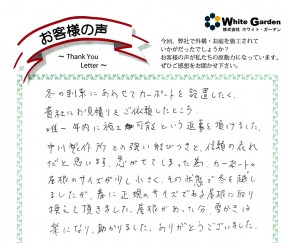 お客様の声
～ Thank You
Letter ～
White Garden
株式会社 ホワイト・ガーデン
今回、弊社で外構・お庭を施工されて
いかがだったでしょうか？
お客様の声が私たちの原動力になっています。
ぜひご感想をお聞かせ下さい。
冬の到来にあわせてカーポートを設置したく、
貴社にお見積りをご依頼したところ、
唯一年内に施工可能という返事を頂けました。
中川製作所との強い結びつきと、信頼の表れ
だと思います。急がせてしまった為、カーポートの
屋根のサイズが少し小さく、その状態で冬を越し
ましたが、春に正規のサイズである屋根に取り
換えて頂きました。屋根があった分、雪かきは
楽になり、助かりました。ありがとうございました。